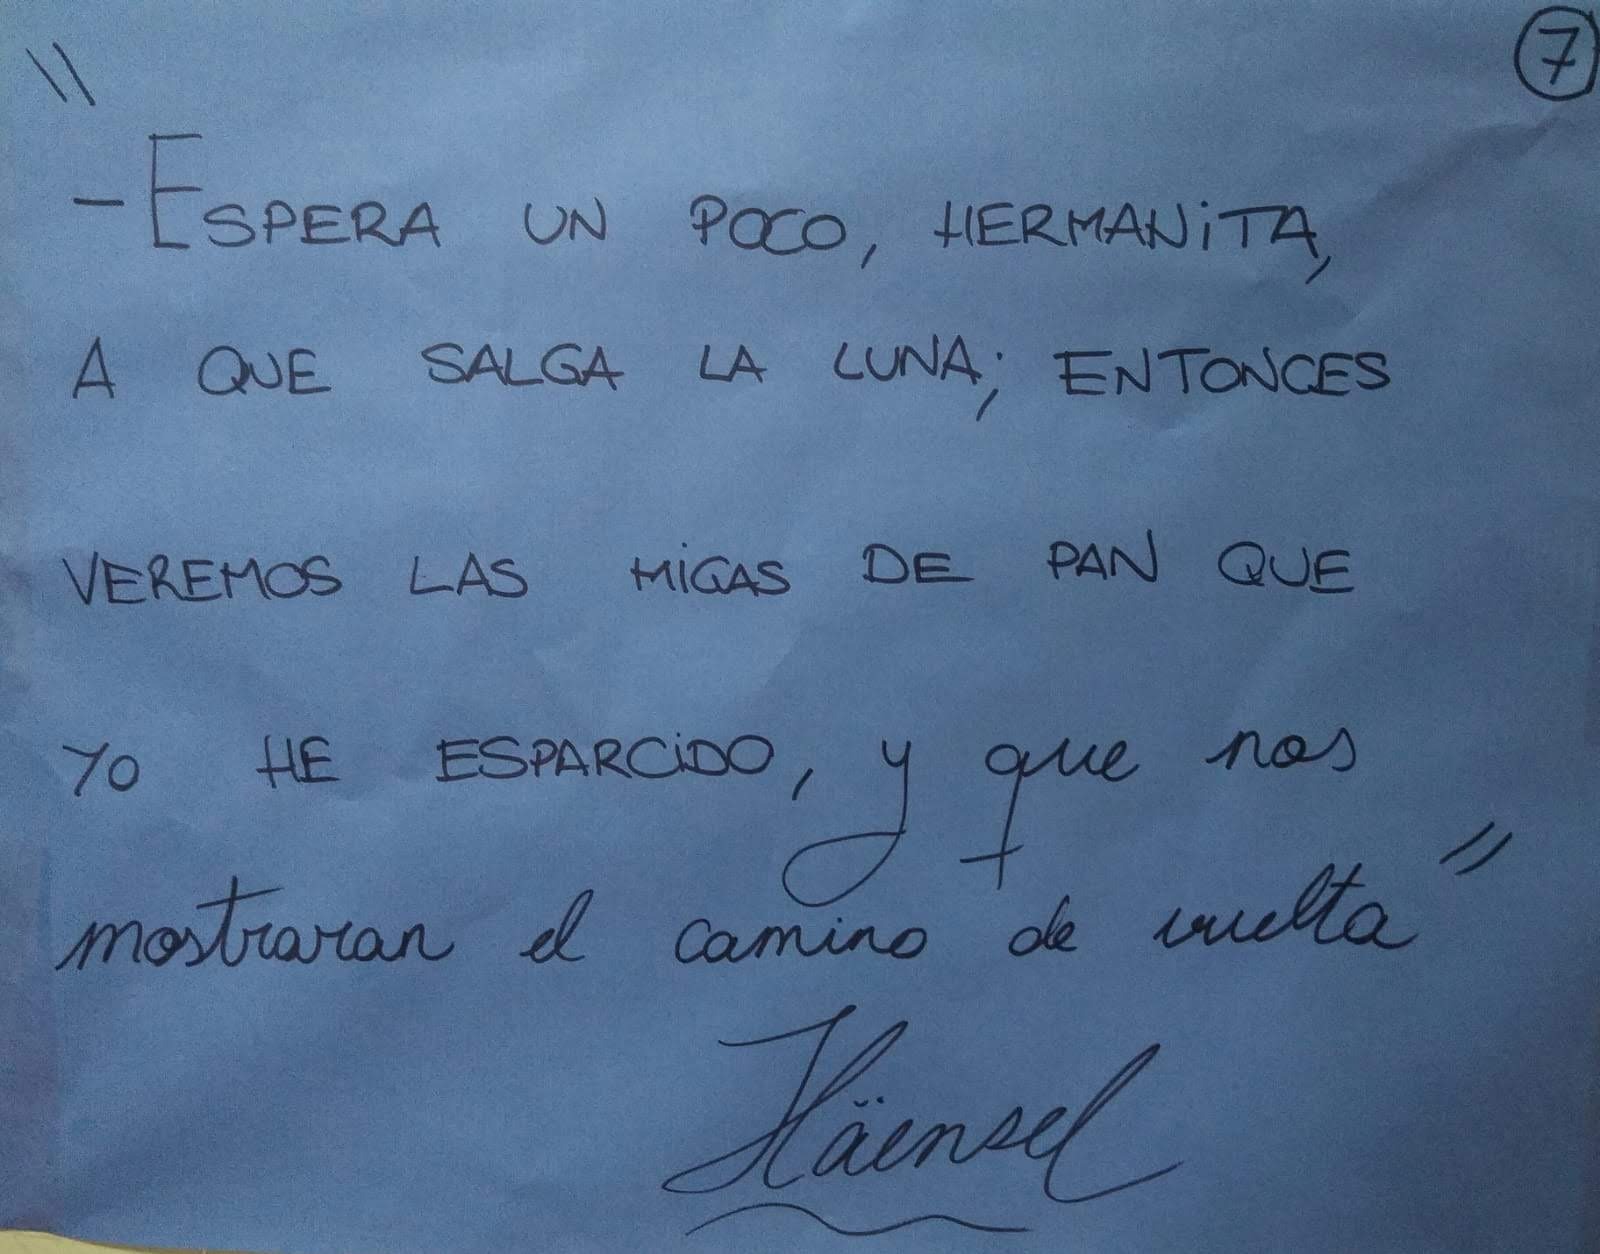 7
"
-ESPERA UN POCO, HERMANiTA,
A QUE SALGA LA LUNA; ENTONCES
VEREMOS LAS MiGAS DE PAN QUE
YO HE ESPARCiDO, y que nos
mostraran el camino de vuelta"
Häensel